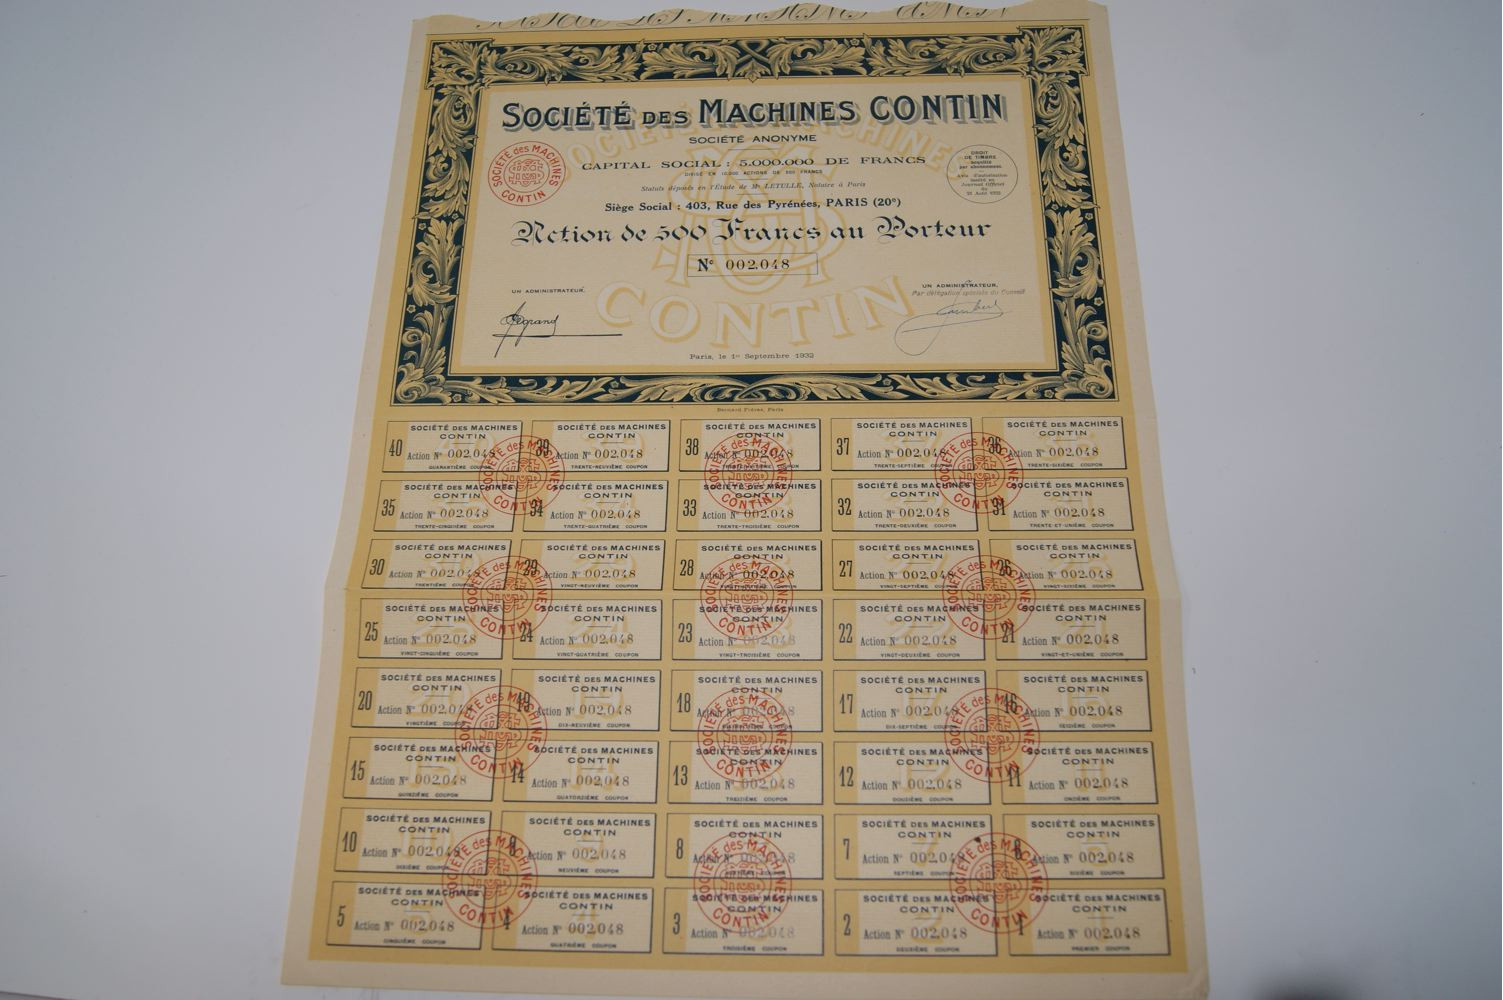 SOCIÉTÉ DES MACHINES CONTIN
SOCIÉTÉ ANONYME
CAPITAL SOCIAL : 5.000.000 DE FRANCS
DIVISÉ EN 10.000 ACTIONS DE 500 FRANCS
Statuts déposés en l'Étude de Me LETULLE, Notaire à Paris
Siège Social : 403, Rue des Pyrénées, PARIS (20e)
Action de 500 Francs au Porteur
No 002,048
SOCIÉTÉ des MACHINES CONTIN
DROIT
DE TIMBRE
acquitté
par abonnement
Avis d'autorisation
inséré au
Journal Officiel
du
21 Août 1932
UN ADMINISTRATEUR,
UN ADMINISTRATEUR,
Par délégation spéciale du Conseil
CONTIN
Paris, le 1er Septembre 1932
Bernard Frères, Paris
40 SOCIÉTÉ DES MACHINES CONTIN Action No 002,048 QUARANTIÈME COUPON
39 SOCIÉTÉ DES MACHINES CONTIN Action No 002,048 TRENTE-NEUVIÈME COUPON
38 SOCIÉTÉ DES MACHINES CONTIN Action No 002,048
37 SOCIÉTÉ DES MACHINES CONTIN Action No 002,048 TRENTE-SEPTIÈME COUPON
36 SOCIÉTÉ DES MACHINES CONTIN Action No 002,048 TRENTE-SIXIÈME COUPON
35 SOCIÉTÉ DES MACHINES CONTIN Action No 002,048 TRENTE-CINQUIÈME COUPON
34 SOCIÉTÉ DES MACHINES CONTIN Action No 002,048 TRENTE-QUATRIÈME COUPON
33 SOCIÉTÉ DES MACHINES CONTIN Action No 002,048 TRENTE-TROISIÈME COUPON
32 SOCIÉTÉ DES MACHINES CONTIN Action No 002,048 TRENTE-DEUXIÈME COUPON
31 SOCIÉTÉ DES MACHINES CONTIN Action No 002,048 TRENTE-ET-UNIÈME COUPON
30 SOCIÉTÉ DES MACHINES CONTIN Action No 002,048 TRENTIÈME COUPON
29 SOCIÉTÉ DES MACHINES CONTIN Action No 002,048 VINGT-NEUVIÈME COUPON
28 SOCIÉTÉ DES MACHINES CONTIN Action No 002,048
27 SOCIÉTÉ DES MACHINES CONTIN Action No 002,048 VINGT-SEPTIÈME COUPON
26 SOCIÉTÉ DES MACHINES CONTIN Action No 002,048 VINGT-SIXIÈME COUPON
25 SOCIÉTÉ DES MACHINES CONTIN Action No 002,048 VINGT-CINQUIÈME COUPON
24 SOCIÉTÉ DES MACHINES CONTIN Action No 002,048 VINGT-QUATRIÈME COUPON
23 SOCIÉTÉ DES MACHINES CONTIN Action No 002,048 VINGT-TROISIÈME COUPON
22 SOCIÉTÉ DES MACHINES CONTIN Action No 002,048 VINGT-DEUXIÈME COUPON
21 SOCIÉTÉ DES MACHINES CONTIN Action No 002,048 VINGT-ET-UNIÈME COUPON
20 SOCIÉTÉ DES MACHINES CONTIN Action No 002,048 VINGTIÈME COUPON
19 SOCIÉTÉ DES MACHINES CONTIN Action No 002,048 DIX-NEUVIÈME COUPON
18 SOCIÉTÉ DES MACHINES CONTIN Action No 002,048
17 SOCIÉTÉ DES MACHINES CONTIN Action No 002,048 DIX-SEPTIÈME COUPON
16 SOCIÉTÉ DES MACHINES CONTIN Action No 002,048 SEIZIÈME COUPON
15 SOCIÉTÉ DES MACHINES CONTIN Action No 002,048 QUINZIÈME COUPON
14 SOCIÉTÉ DES MACHINES CONTIN Action No 002,048 QUATORZIÈME COUPON
13 SOCIÉTÉ DES MACHINES CONTIN Action No 002,048 TREIZIÈME COUPON
12 SOCIÉTÉ DES MACHINES CONTIN Action No 002,048 DOUZIÈME COUPON
11 SOCIÉTÉ DES MACHINES CONTIN Action No 002,048 ONZIÈME COUPON
10 SOCIÉTÉ DES MACHINES CONTIN Action No 002,048 DIXIÈME COUPON
9 SOCIÉTÉ DES MACHINES CONTIN Action No 002,048 NEUVIÈME COUPON
8 SOCIÉTÉ DES MACHINES CONTIN Action No 002,048 HUITIÈME COUPON
7 SOCIÉTÉ DES MACHINES CONTIN Action No 002,048 SEPTIÈME COUPON
6 SOCIÉTÉ DES MACHINES CONTIN Action No 002,048 SIXIÈME COUPON
5 SOCIÉTÉ DES MACHINES CONTIN Action No 002,048 CINQUIÈME COUPON
4 SOCIÉTÉ DES MACHINES CONTIN Action No 002,048 QUATRIÈME COUPON
3 SOCIÉTÉ DES MACHINES CONTIN Action No 002,048 TROISIÈME COUPON
2 SOCIÉTÉ DES MACHINES CONTIN Action No 002,048 DEUXIÈME COUPON
1 SOCIÉTÉ DES MACHINES CONTIN Action No 002,048 PREMIER COUPON